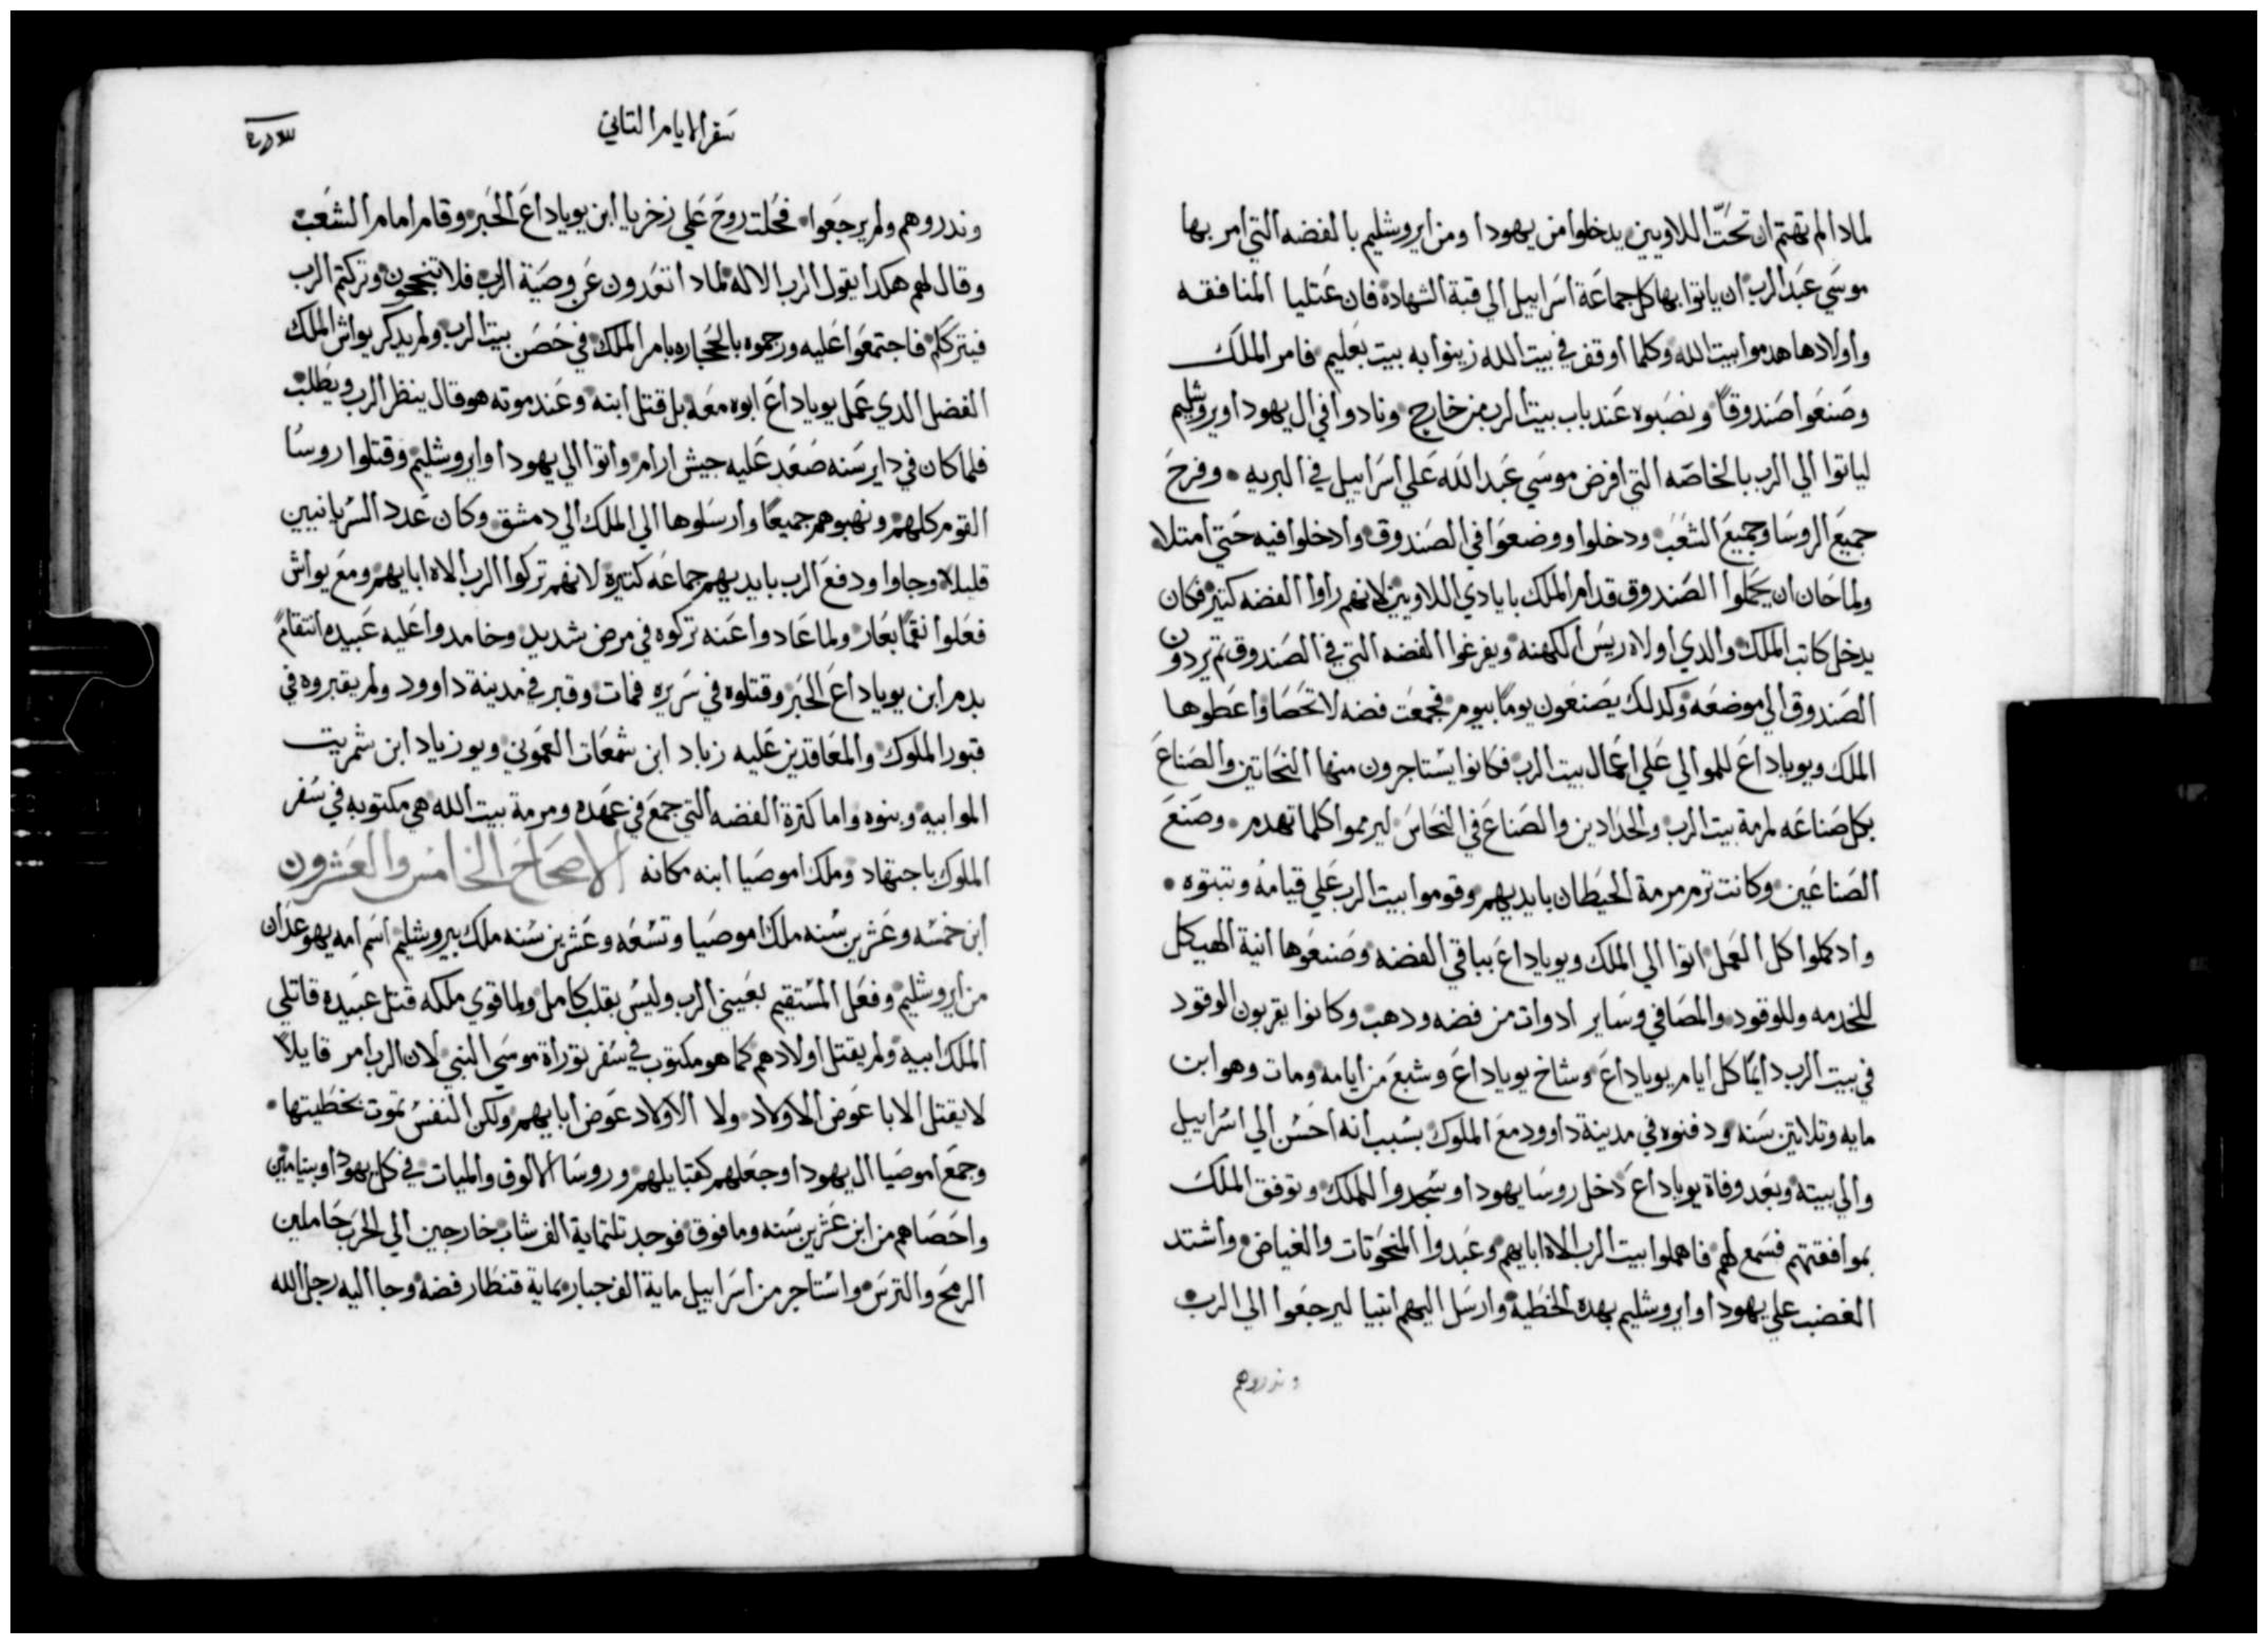 لمادا لم تهتم ان تحت اللاويين يدخلوا من يهودا ومن ايروشليم بالفضه التي امر بها
موسي عبد الرب ان ياتوا بها كل جماعة اسراييل الي قبة الشهادة فان عتليا المنافقه
واولادها هدموا بيت الله وكلما اوقف في بيت الله زينوا به بيت بعليم فامر الملك
وصنعوا صندوقاً ونصبوه عند باب بيت الرب من خارج ونادوا في ال يهودا ويروشليم
لياتوا الي الرب بالخاصه التي افرض موسي عبد الله علي اسراييل في البريه وفرح
جميع الروسا وجميع الشعب ودخلوا ووضعوا في الصندوق وادخلوا فيه حتي امتلا
ولما حان ان يحملوا الصندوق قدام الملك بايادي اللاويين لانهم راوا الفضه كتير فكان
يدخل كاتب الملك والدي اولاه ريس الكهنه ويفرغوا الفضه التي في الصندوق تم يردون
الصندوق الي موضعه وكدلك يصنعون يوماً بيوم فجمعت فضه لا تحصا واعطوها
الملك ويوياداع للموالي علي اعمال بيت الرب فكانوا يستاجرون منها النحاتين والصناع
بكل صناعه لمرمة بيت الرب والحدادين والصناع في النحاس ليرمموا كلما تهدم وصنع
الصناعين وكانت ترم مرمة الحيطان بايديهم وقوموا بيت الرب علي قيامه وتبتوه
واد كملوا كل العمل اتوا الي الملك ويوياداع بباقي الفضه وصنعوها انية الهيكل
للخدمه وللوقود والمصافي وساير ادوات من فضه ودهب وكانوا يقربون الوقود
في بيت الرب دايماً كل ايام يوياداع وشاخ يوياداع وشبع من ايامه ومات وهو ابن
مايه وتلاتين سنه ودفنوه في مدينة داوود مع الملوك بسبب انه احسن الي اسراييل
والي بيته وبعد وفاة يوياداع دخل روسا يهودا وسجدوا للملك وتوفق الملك
بموافقتهم فسمع لهم فاهملوا بيت الرب الاه ابايهم وعبدوا المنحوتات والغياض واشتد
الغضب علي يهودا وايروشليم بهده الخطيه وارسل اليهم انبيا ليرجعوا الي الرب
وندروهم
سفر الايام التاني
وندروهم ولم يرجعوا فحلت روح علي زخريا ابن يوياداع الحبر وقام امام الشعب
وقال لهم هكدا يقول الرب الاله لمادا تتعدون عن وصية الرب فلا تنجحون وتركتم الرب
فيترككم فاجتمعوا عليه ورجموه بالحجاره بامر الملك في حصن بيت الرب ولم يدكر يواش الملك
الفضل الدي عمل يوياداع ابوه معه بل قتل ابنه وعند موته هو قال ينظر الرب ويطلب
فلما كان في داير سنه صعد عليه جيش ارام واتوا الي يهودا وايروشليم وقتلوا روسا
القوم كلهم ونهبوهم جميعاً وارسلوها الي الملك الي دمشق وكان عدد السريانيين
قليلا وجاوا ودفع الرب بايديهم جماعه كتيرة لانهم تركوا الرب الاه ابايهم ومع يواش
فعلوا نقماً بعار ولما عادوا عنه تركوه في مرض شديد وخامدوا عليه عبيده انتقام
بدم ابن يوياداع الحبر وقتلوه في سريره فمات وقبر في مدينة داوود ولم يقبروه في
قبور الملوك والمعاقدين عليه زباد ابن شمعات العموني ويوزياد ابن شمريت
الموابيه وبنوه واما كترة الفضه التي جمع في عهده ومرمة بيت الله هي مكتوبه في سفر
الملوك باجتهاد وملك اموصيا ابنه مكانه الاصحاح الخامس والعشرون
ابن خمسه وعشرين سنه ملك اموصيا وتسعه وعشرين سنه ملك بيروشليم اسم امه يهوعدان
من ايروشليم وفعل المستقيم بعيني الرب وليس بقلب كامل ولما قوي ملكه قتل عبيده قاتلي
الملك ابيه ولم يقتل اولادهم كما هو مكتوب في سفر توراة موسي النبي لان الرب امر قايلاً
لا يقتل الابا عوض الاولاد ولا الاولاد عوض ابايهم ولكن النفس تموت بخطيتها
وجمع اموصيا ال يهودا وجعلهم كقبايلهم وروسا الالوف والميات في كل يهودا وبنيامين
واحصاهم من ابن عشرين سنه وما فوق فوجد تلتماية الف شاب خارجين الي الحرب حاملين
الرمح والترس واستاجر من اسراييل ماية الف جبار بماية قنطار فضه وجا اليه رجل الله